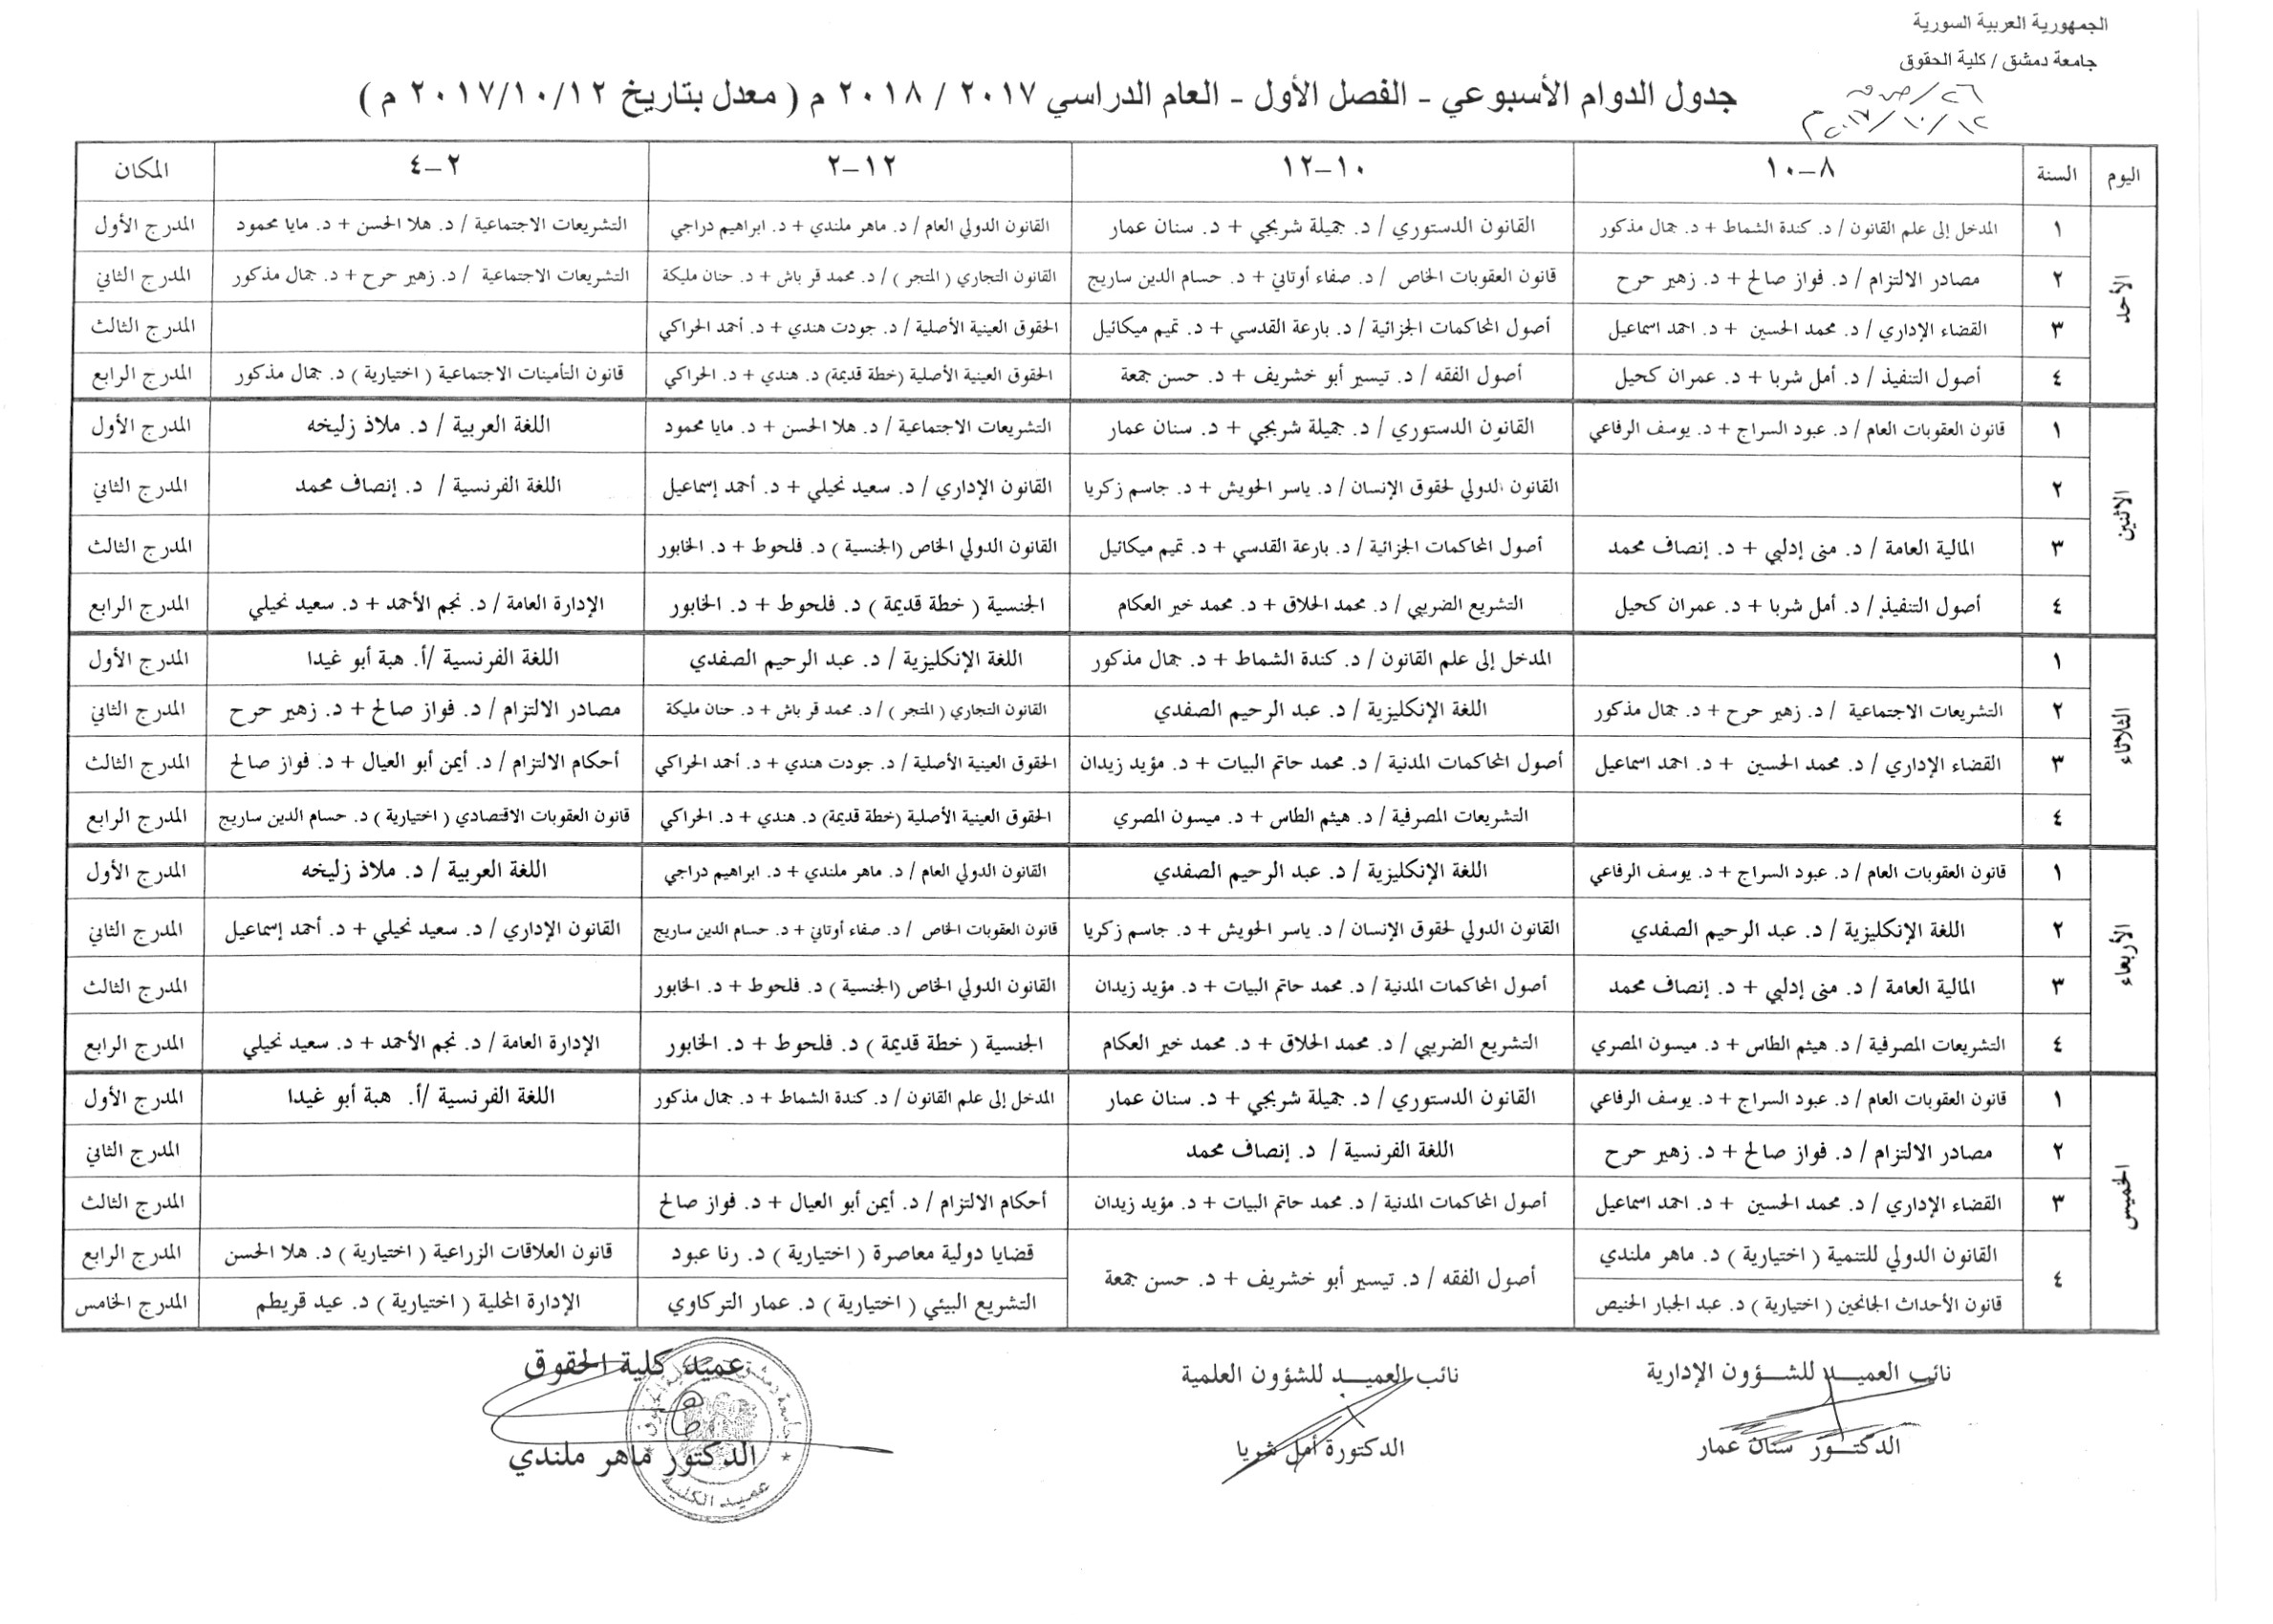 الجمهورية العربية السورية
جامعة دمشق / كلية الحقوق
٢٦/ص ق
٢٠١٧/١٠/١٢ م
جدول الدوام الأسبوعي - الفصل الأول - العام الدراسي ٢٠١٧ / ٢٠١٨ م ( معدل بتاريخ ٢٠١٧/١٠/١٢ م )
اليوم السنة ٨-١٠ ١٠-١٢ ١٢-٢ ٢-٤ المكان
الأحد
١ المدخل إلى علم القانون / د. كندة الشماط + د. جمال مذكور القانون الدستوري / د. جميلة شربجي + د. سنان عمار القانون الدولي العام / د. ماهر ملندي + د. ابراهيم دراجي التشريعات الاجتماعية / د. هلا الحسن + د. مايا محمود المدرج الأول
٢ مصادر الالتزام / د. فواز صالح + د. زهير حرح قانون العقوبات الخاص / د. صفاء أوتاني + د. حسام الدين ساريج القانون التجاري ( المتجر ) / د. محمد قر باش + د. حنان مليكة التشريعات الاجتماعية / د. زهير حرح + د. جمال مذكور المدرج الثاني
٣ القضاء الإداري / د. محمد الحسين + د. احمد اسماعيل أصول المحاكمات الجزائية / د. بارعة القدسي + د. تميم ميكائيل الحقوق العينية الأصلية / د. جودت هندي + د. أحمد الحراكي المدرج الثالث
٤ أصول التنفيذ / د. أمل شربا + د. عمران كحيل أصول الفقه / د. تيسير أبو خشريف + د. حسن جمعة الحقوق العينية الأصلية (خطة قديمة) د. هندي + د. الحراكي قانون التأمينات الاجتماعية ( اختيارية ) د. جمال مذكور المدرج الرابع
الاثنين
١ قانون العقوبات العام / د. عبود السراج + د. يوسف الرفاعي القانون الدستوري / د. جميلة شربجي + د. سنان عمار التشريعات الاجتماعية / د. هلا الحسن + د. مايا محمود اللغة العربية / د. ملاذ زليخه المدرج الأول
٢ القانون الدولي لحقوق الإنسان / د. ياسر الحويش + د. جاسم زكريا القانون الإداري / د. سعيد نحيلي + د. أحمد إسماعيل اللغة الفرنسية / د. إنصاف محمد المدرج الثاني
٣ المالية العامة / د. منى إدلبي + د. إنصاف محمد أصول المحاكمات الجزائية / د. بارعة القدسي + د. تميم ميكائيل القانون الدولي الخاص (الجنسية ) د. فلحوط + د. الخابور المدرج الثالث
٤ أصول التنفيذ / د. أمل شربا + د. عمران كحيل التشريع الضريبي / د. محمد الحلاق + د. محمد خير العكام الجنسية ( خطة قديمة ) د. فلحوط + د. الخابور الإدارة العامة / د. نجم الأحمد + د. سعيد نحيلي المدرج الرابع
الثلاثاء
١ المدخل إلى علم القانون / د. كندة الشماط + د. جمال مذكور اللغة الإنكليزية / د. عبد الرحيم الصفدي اللغة الفرنسية /أ. هبة أبو غيدا المدرج الأول
٢ التشريعات الاجتماعية / د. زهير حرح + د. جمال مذكور اللغة الإنكليزية / د. عبد الرحيم الصفدي القانون التجاري ( المتجر ) / د. محمد قر باش + د. حنان مليكة مصادر الالتزام / د. فواز صالح + د. زهير حرح المدرج الثاني
٣ القضاء الإداري / د. محمد الحسين + د. احمد اسماعيل أصول المحاكمات المدنية / د. محمد حاتم البيات + د. مؤيد زيدان الحقوق العينية الأصلية / د. جودت هندي + د. أحمد الحراكي أحكام الالتزام / د. أيمن أبو العيال + د. فواز صالح المدرج الثالث
٤ التشريعات المصرفية / د. هيثم الطاس + د. ميسون المصري الحقوق العينية الأصلية (خطة قديمة) د. هندي + د. الحراكي قانون العقوبات الاقتصادي ( اختيارية ) د. حسام الدين ساريج المدرج الرابع
الأربعاء
١ قانون العقوبات العام / د. عبود السراج + د. يوسف الرفاعي اللغة الإنكليزية / د. عبد الرحيم الصفدي القانون الدولي العام / د. ماهر ملندي + د. ابراهيم دراجي اللغة العربية / د. ملاذ زليخه المدرج الأول
٢ اللغة الإنكليزية / د. عبد الرحيم الصفدي القانون الدولي لحقوق الإنسان / د. ياسر الحويش + د. جاسم زكريا قانون العقوبات الخاص / د. صفاء أوتاني + د. حسام الدين ساريج القانون الإداري / د. سعيد نحيلي + د. أحمد إسماعيل المدرج الثاني
٣ المالية العامة / د. منى إدلبي + د. إنصاف محمد أصول المحاكمات المدنية / د. محمد حاتم البيات + د. مؤيد زيدان القانون الدولي الخاص (الجنسية ) د. فلحوط + د. الخابور المدرج الثالث
٤ التشريعات المصرفية / د. هيثم الطاس + د. ميسون المصري التشريع الضريبي / د. محمد الحلاق + د. محمد خير العكام الجنسية ( خطة قديمة ) د. فلحوط + د. الخابور الإدارة العامة / د. نجم الأحمد + د. سعيد نحيلي المدرج الرابع
الخميس
١ قانون العقوبات العام / د. عبود السراج + د. يوسف الرفاعي القانون الدستوري / د. جميلة شربجي + د. سنان عمار المدخل إلى علم القانون / د. كندة الشماط + د. جمال مذكور اللغة الفرنسية /أ. هبة أبو غيدا المدرج الأول
٢ مصادر الالتزام / د. فواز صالح + د. زهير حرح اللغة الفرنسية / د. إنصاف محمد المدرج الثاني
٣ القضاء الإداري / د. محمد الحسين + د. احمد اسماعيل أصول المحاكمات المدنية / د. محمد حاتم البيات + د. مؤيد زيدان أحكام الالتزام / د. أيمن أبو العيال + د. فواز صالح المدرج الثالث
٤ القانون الدولي للتنمية ( اختيارية ) د. ماهر ملندي أصول الفقه / د. تيسير أبو خشريف + د. حسن جمعة قضايا دولية معاصرة ( اختيارية ) د. رنا عبود قانون العلاقات الزراعية ( اختيارية ) د. هلا الحسن المدرج الرابع
قانون الأحداث الجانحين ( اختيارية ) د. عبد الجبار الحنيص التشريع البيئي ( اختيارية ) د. عمار التركاوي الإدارة المحلية ( اختيارية ) د. عيد قريطم المدرج الخامس
نائب العميد للشؤون الإدارية نائب العميد للشؤون العلمية عميد كلية الحقوق
الدكتور سنان عمار الدكتورة أمل شربا الدكتور ماهر ملندي
عميد الكلية